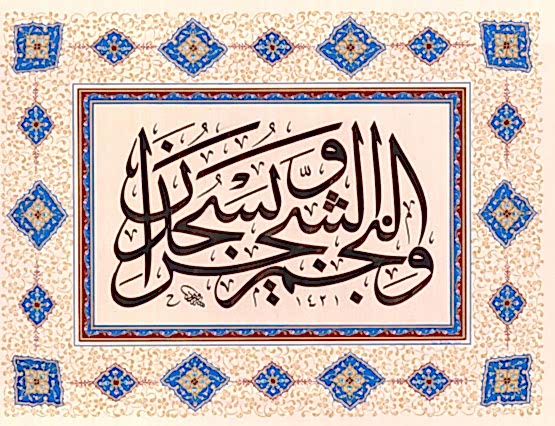 وَالنَّجْمُ وَالشَّجَرُ يَسْجُدَانِ
١٤٢١